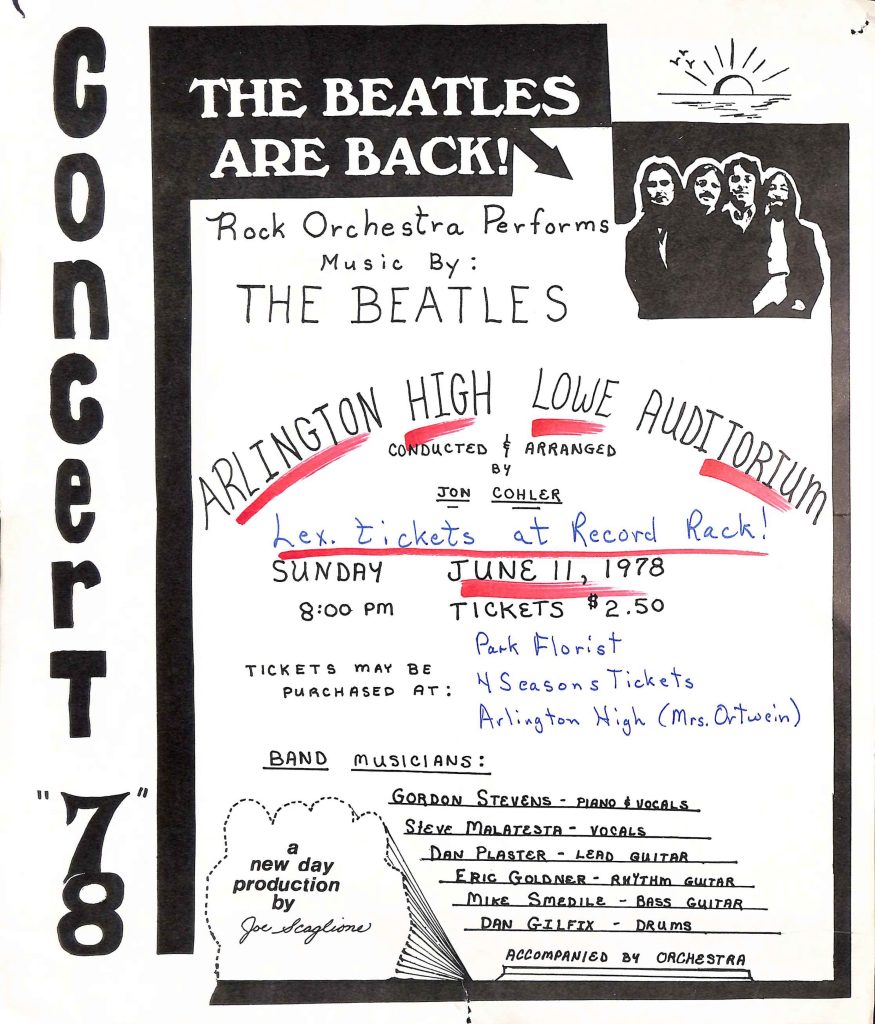 Concert
"78"
THE BEATLES
ARE BACK!
Rock Orchestra Performs
Music By:
THE BEATLES
ARLINGTON HIGH LOWE AUDITORIUM
CONDUCTED & ARRANGED
BY
JON COHLER
Lex. tickets at Record Rack!
SUNDAY JUNE 11, 1978
8:00 PM TICKETS $2.50
TICKETS MAY BE
PURCHASED AT:
Park Florist
4 Seasons Tickets
Arlington High (Mrs. Ortwein)
BAND MUSICIANS:
GORDON STEVENS - PIANO & VOCALS
STEVE MALATESTA - VOCALS
DAN PLASTER - LEAD GUITAR
ERIC GOLDNER - RHYTHM GUITAR
MIKE SMEDILE - BASS GUITAR
DAN GILFIX - DRUMS
ACCOMPANIED BY ORCHESTRA
a
new day
production
by
Joe Scaglione